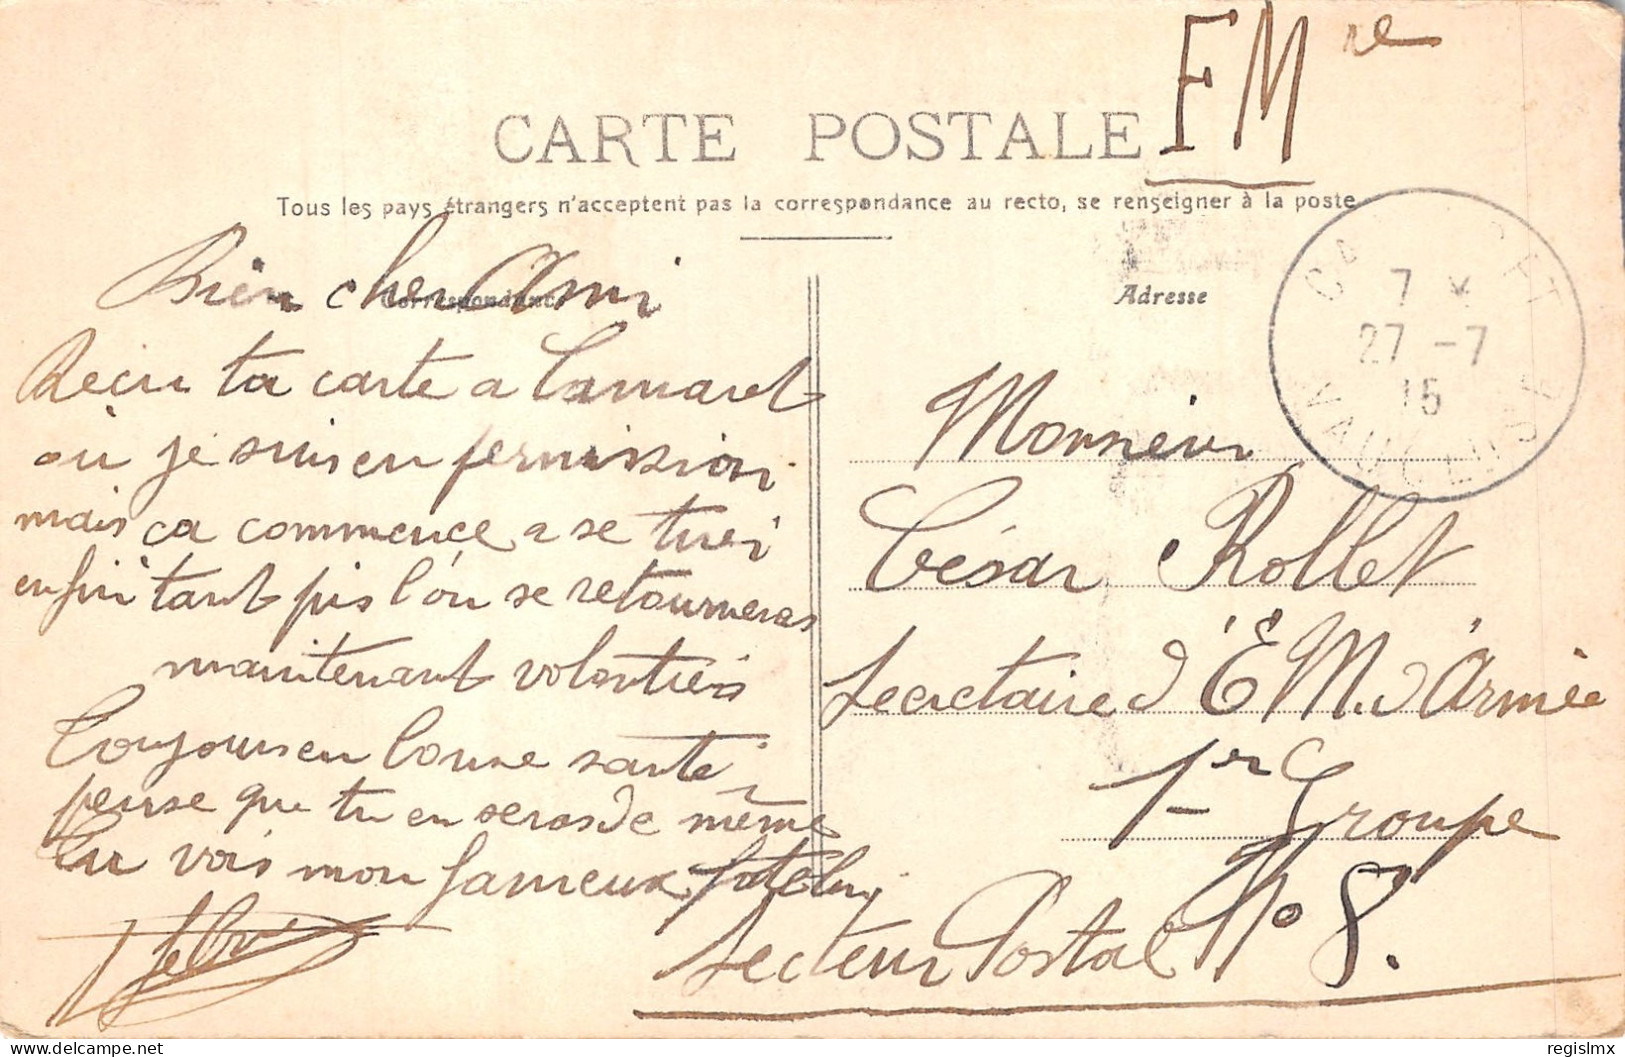 FM re
CARTE POSTALE
Tous les pays étrangers n'acceptent pas la correspondance au recto, se renseigner à la poste
Correspondance
Adresse
7 *
27 -7
15
VAUCLUSE
Bien cher Ami
Recu ta carte a Camaret
ou je suis en permission
mais ca commence a se tirer
enfin tant pis l'on se retourneras
maintenant volontiers
Toujours en bonne santé
pense que tu en seras de même
Tu vois mon fameux
Monsieur
César Rollet
Secrétaire d'E.M. d'Armée
1er Groupe
Secteur Postal No 8.
delcampe.net
regislmx